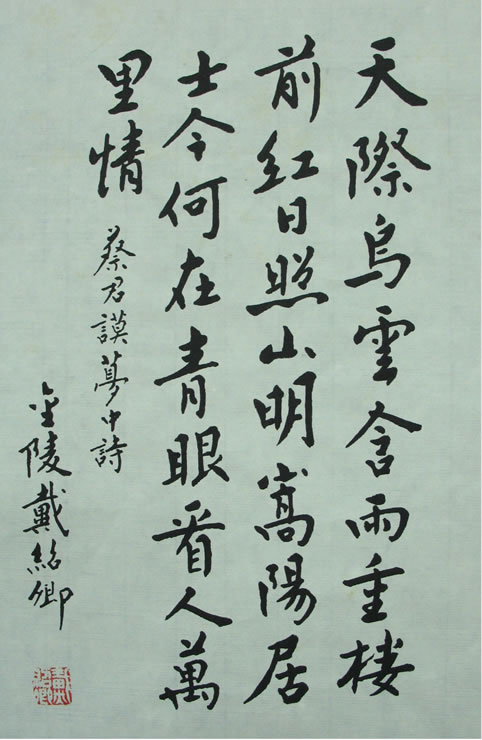 天際烏雲含雨重樓
前紅日照山明嵩陽居
士今何在青眼看人萬
里情
蔡君謨夢中詩
金陵戴紹卿
戴紹卿